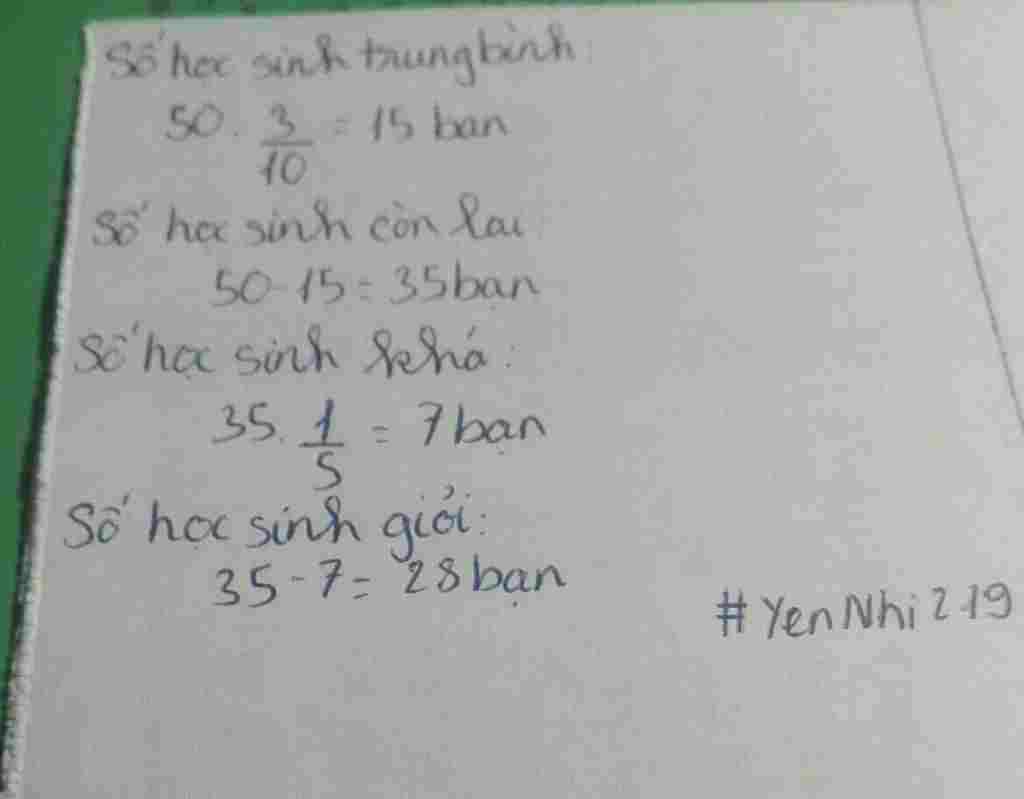 Số học sinh trung bình:
50. 3/10 = 15 bạn
Số học sinh còn lại
50-15 = 35 bạn
Số học sinh khá:
35. 1/5 = 7 bạn
Số học sinh giỏi:
35-7= 28 bạn
# YenNhi 219